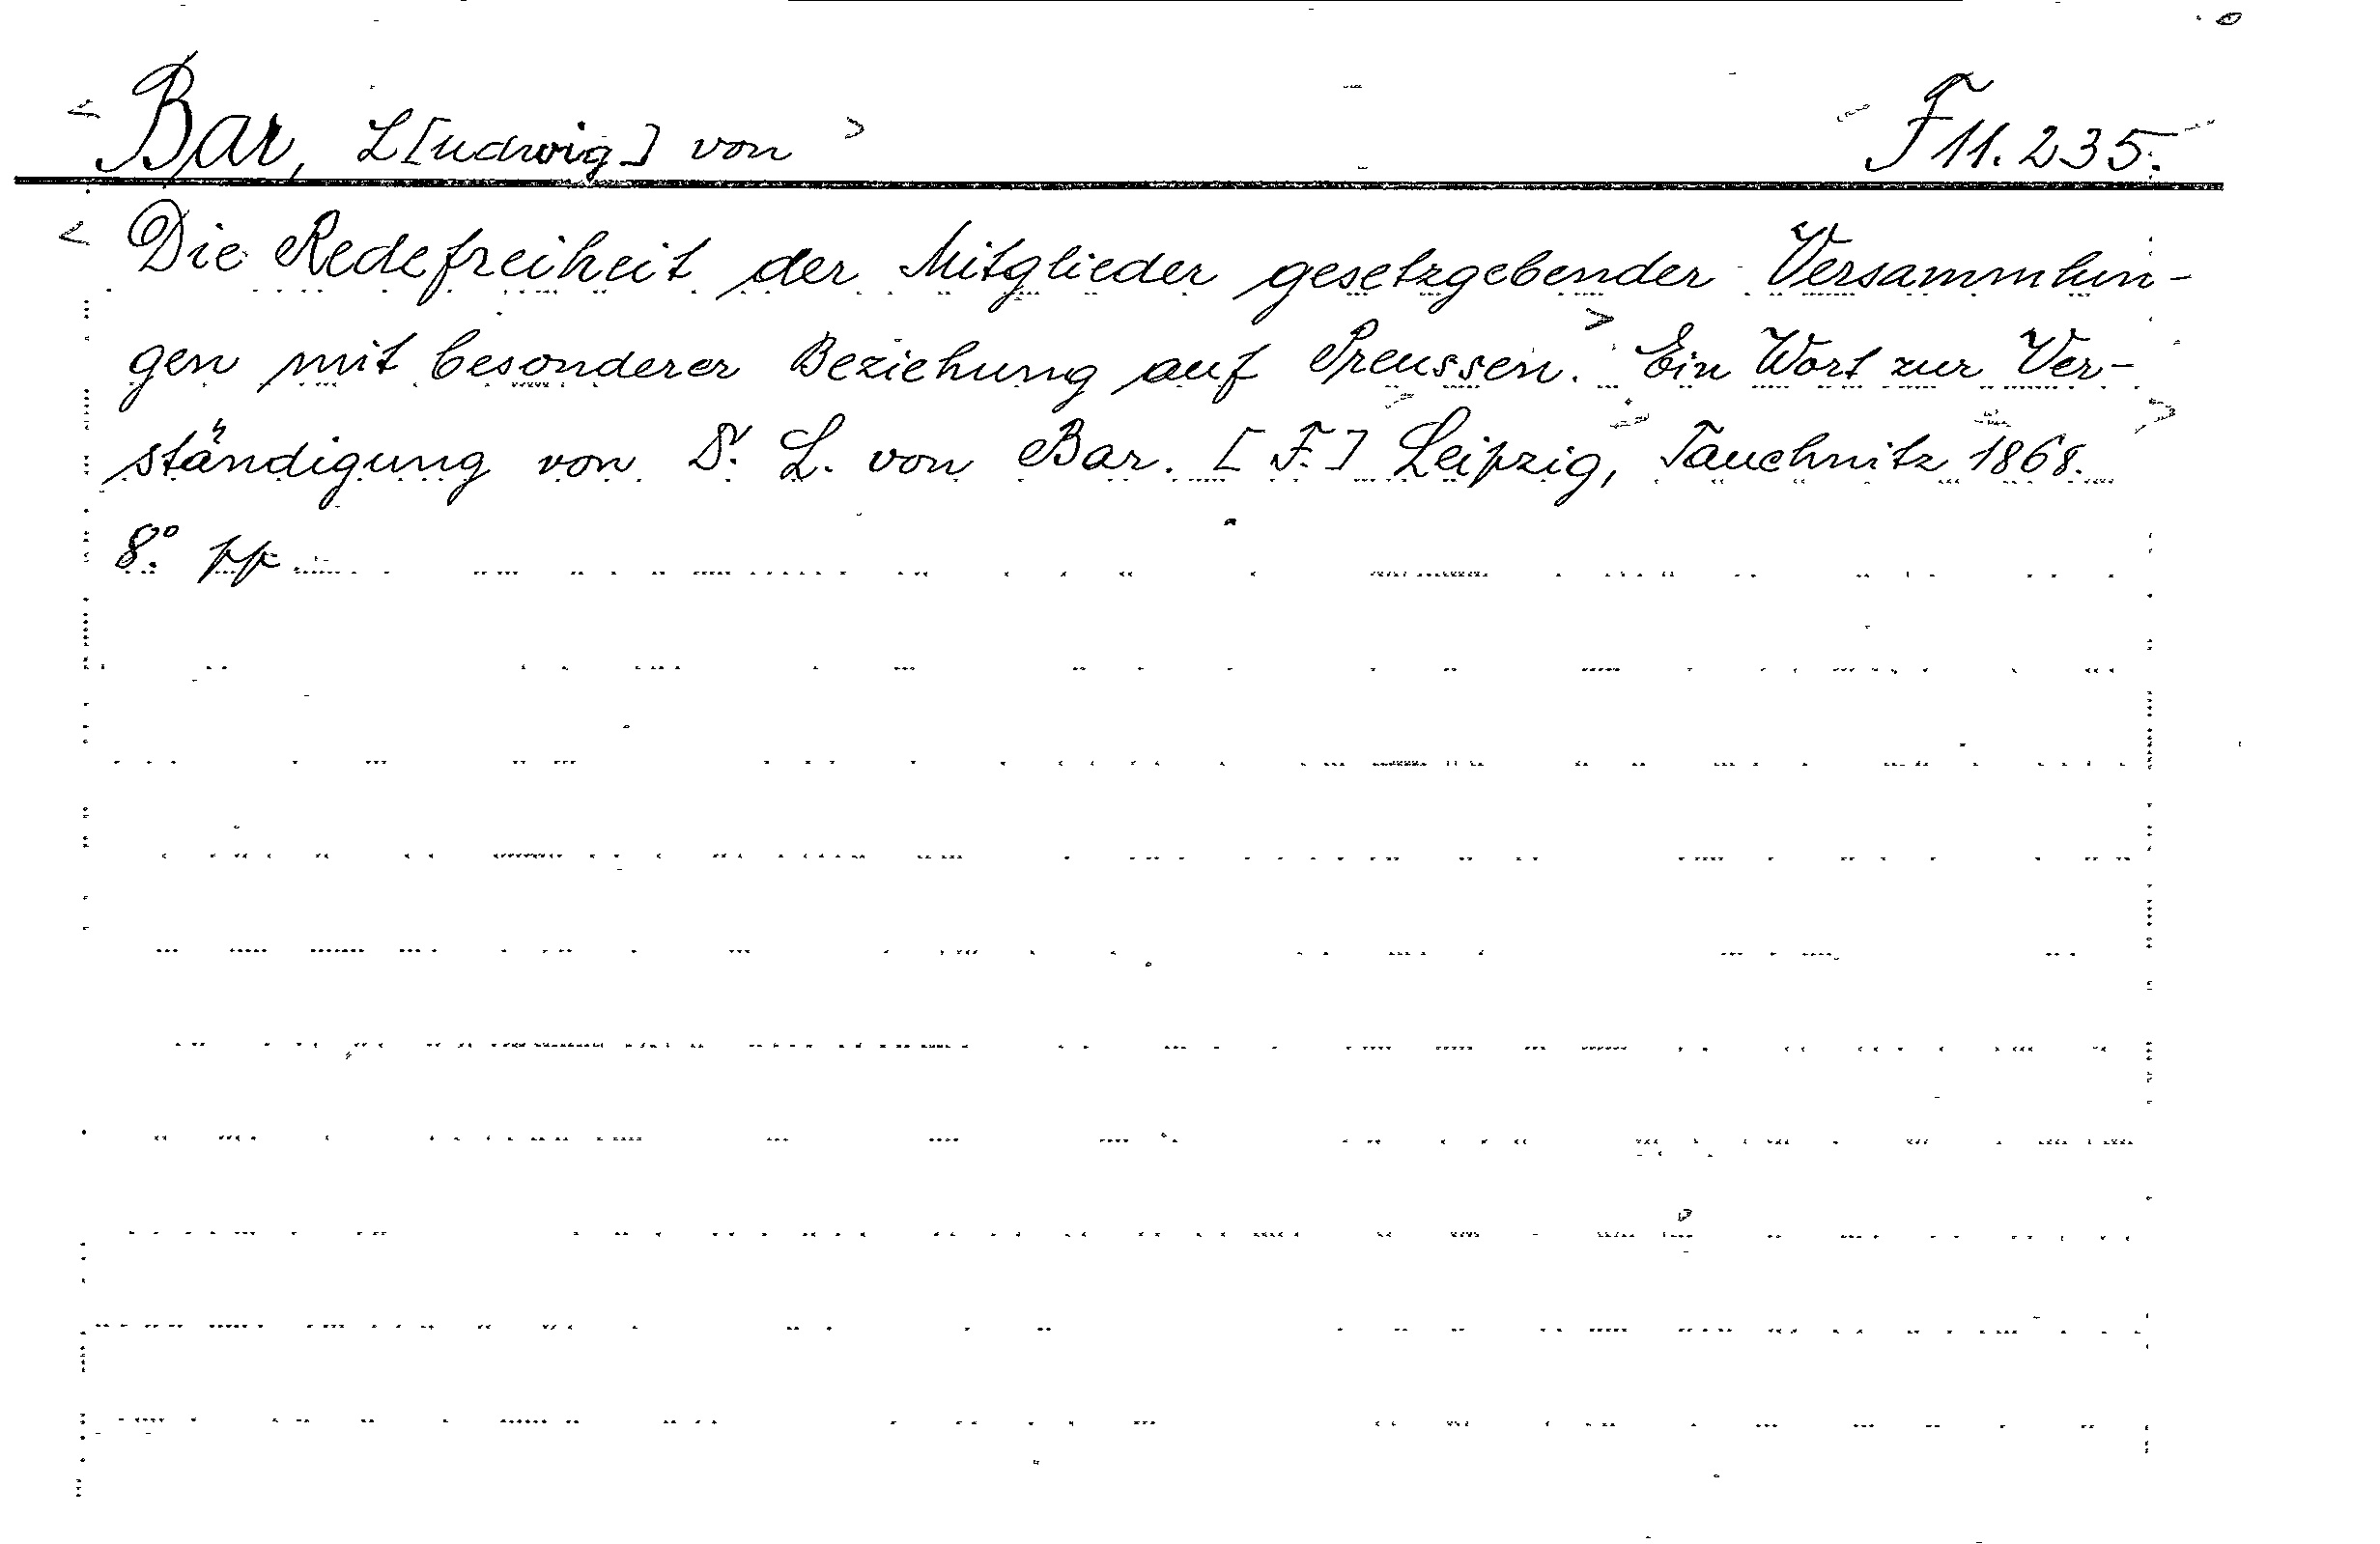 < Bar, L[udwig] von > F 11.235.
< Die Redefreiheit der Mitglieder gesetzgebender Versammlun-
gen mit besonderer Beziehung auf Preussen. > Ein Wort zur Ver-
ständigung von Dr. L. von Bar. [F.] Leipzig, Tauchnitz 1868. >
8.° pp.